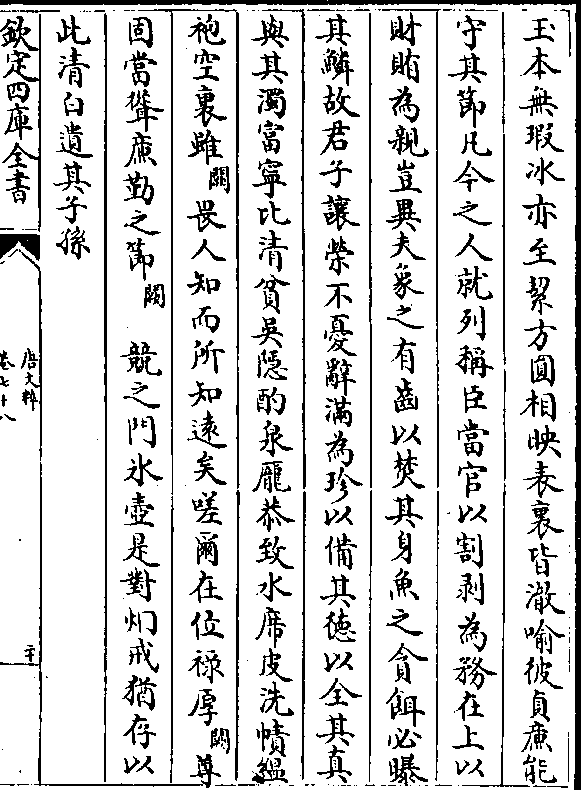 玉本無瑕冰亦至㓗方圓相映表裏皆澈喻彼貞㢘能
守其節凡今之人就列稱臣當官以割剥為務在上以
財賄為親豈異夫象之有齒以焚其身魚之貪餌必曝
其鱗故君子讓榮不憂辭滿為珍以備其徳以全其真
與其濁富寜比清貧吳隱酌泉龎恭致水席皮洗幘縕
袍空裏雖闕畏人知而所知逺矣嗟爾在位禄厚闕尊
固當聳㢘勤之節闕競之門氷壺是對炯戒猶存以
此清白遺其子孫
欽定四庫全書
唐文粹
卷七十八
二十